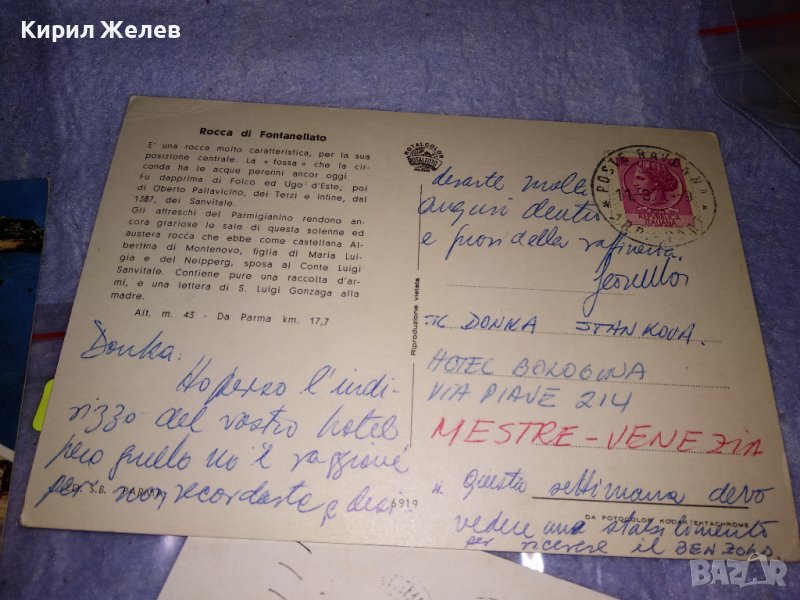 Кирил Желев
Rocca di Fontanellato
E' una rocca molto caratteristica, per la sua
posizione centrale. La « fossa » che la cir-
conda ha le acque perenni ancor oggi
Fu dapprima di Folco ed Ugo d'Este; poi
di Oberto Pallavicino, dei Terzi e infine, dal
1387, dei Sanvitale.
Gli affreschi del Parmigianino rendono an-
cora graziose le sale di questa solenne ed
austera rocca che ebbe come castellana Al-
bertina di Montenovo, figlia di Maria Lui-
gia e del Neipperg, sposa al Conte Luigi
Sanvitale. Contiene pure una raccolta d'ar-
mi, e una lettera di S. Luigi Gonzaga alla
madre.
Alt. m. 43 - Da Parma km. 17,7
Donka:
Ho perso l'indi-
rizzo del vostro hotel
però quello no è raggione
per non recordarte e desi-
S.B.
6919
ROTALCOLOR
ROTALFOTO
Riproduzione vietata
POSTE RAVENNA
REPUBBLICA
ITALIANA
derarte molti
auguri dentro
e fuori della raffineria.
DONKA STANKOVA.
HOTEL BOLOGNA
VIA PIAVE 214
MESTRE-VENEZIA
Questa settimana devo
DA FOTOCOLOR KODAK EKTACHROME
vedere uno stabilimento
per ricevere il BENZOLO.
BAZAR